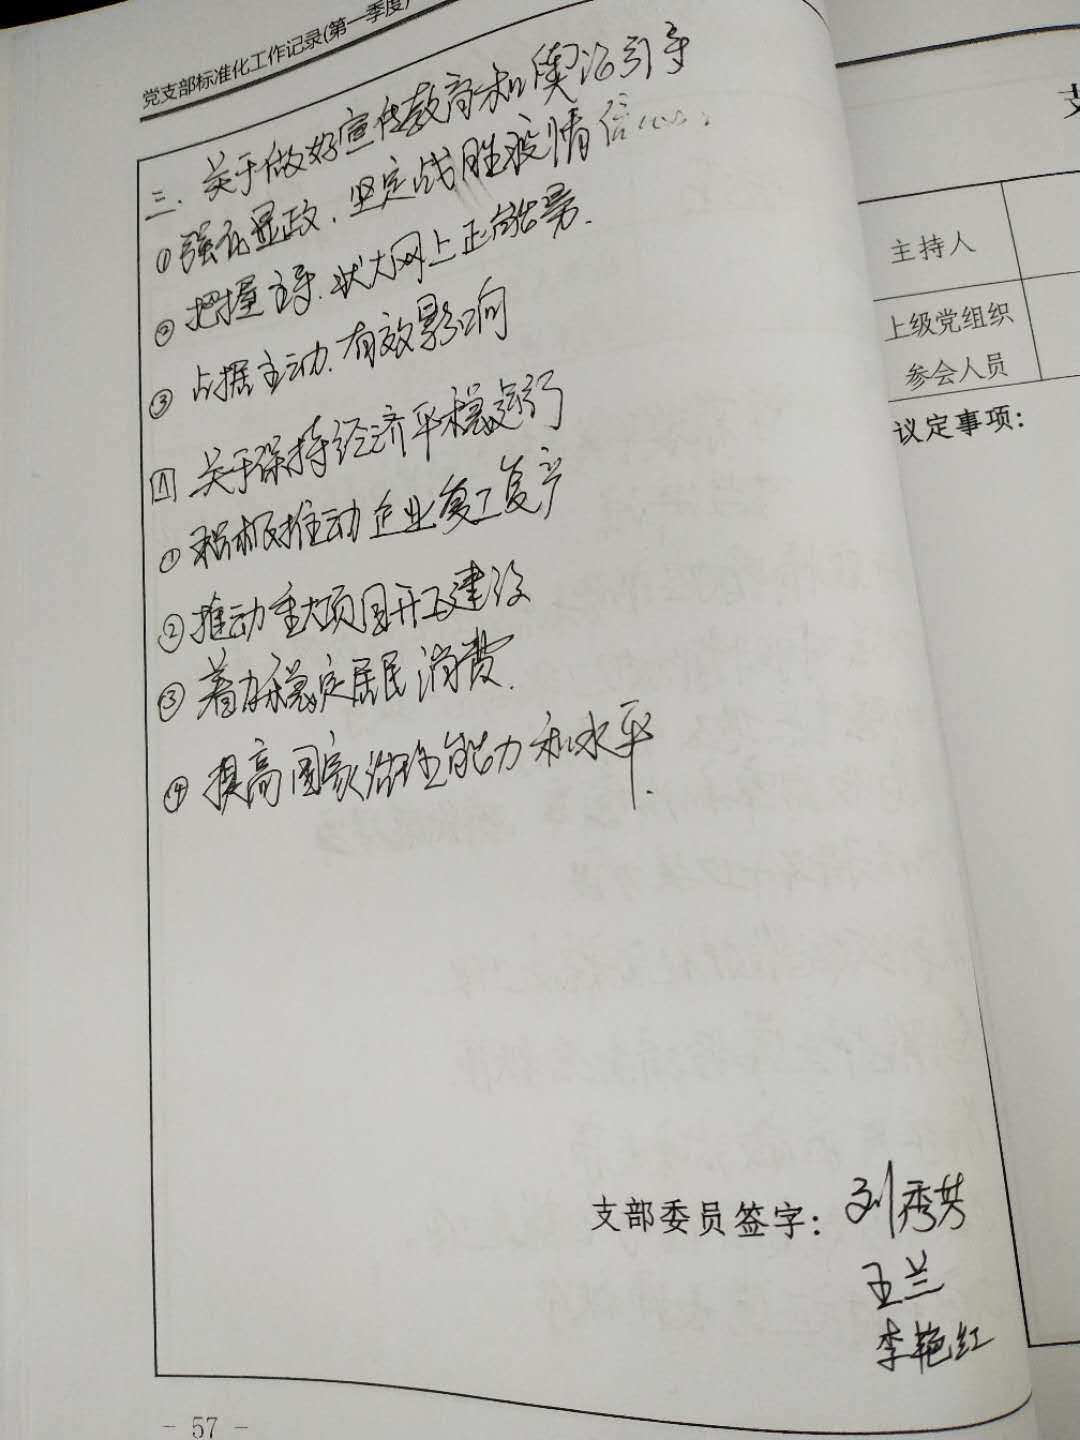 党支部标准化工作记录(第一季度)
三、关于做好宣传教育和舆论引导
①强化显政、坚定战胜疫情信心。
②把握主导、壮大网上正能量.
③占据主动、有效影响
四 关于保持经济平稳运行
①积极推动企业复工复产
②推动重大项目开工建设
③着力稳定居民消费.
④提高国家治理能力和水平.
支部委员签字：刘秀芬
王兰
李艳红
- 57 -
支
主持人
上级党组织
参会人员
议定事项：